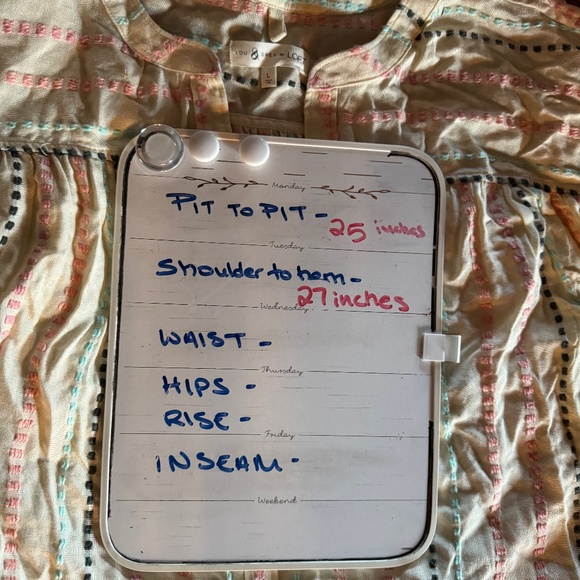 LOU & GREY for LOFT
L
Monday
PIT TO PIT - 25 inches
Tuesday
Shoulder to hem -
27 inches
Wednesday
WAIST -
Thursday
HIPS -
RISE -
Friday
INSEAM -
Weekend